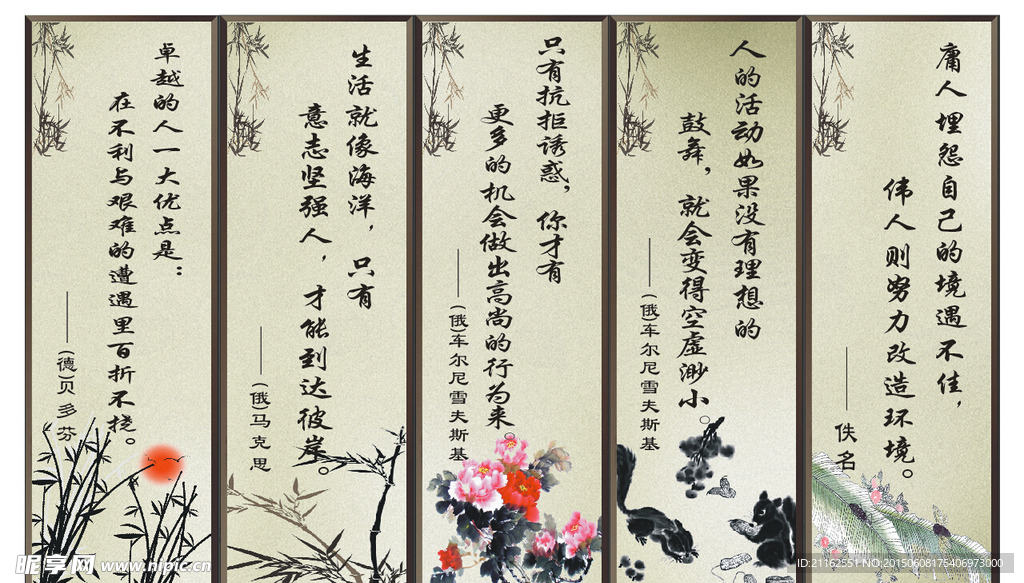 卓越的人一大优点是：
在不利与艰难的遭遇里百折不挠。
——(德)贝多芬
生活就像海洋，只有
意志坚强人，才能到达彼岸。
——(俄)马克思
只有抗拒诱惑，你才有
更多的机会做出高尚的行为来。
——(俄)车尔尼雪夫斯基
人的活动如果没有理想的
鼓舞，就会变得空虚渺小。
——(俄)车尔尼雪夫斯基
庸人埋怨自己的境遇不佳，
伟人则努力改造环境。
——佚名
昵享网 www.nipic.cn
ID:21162551 NO:20150608175406973000